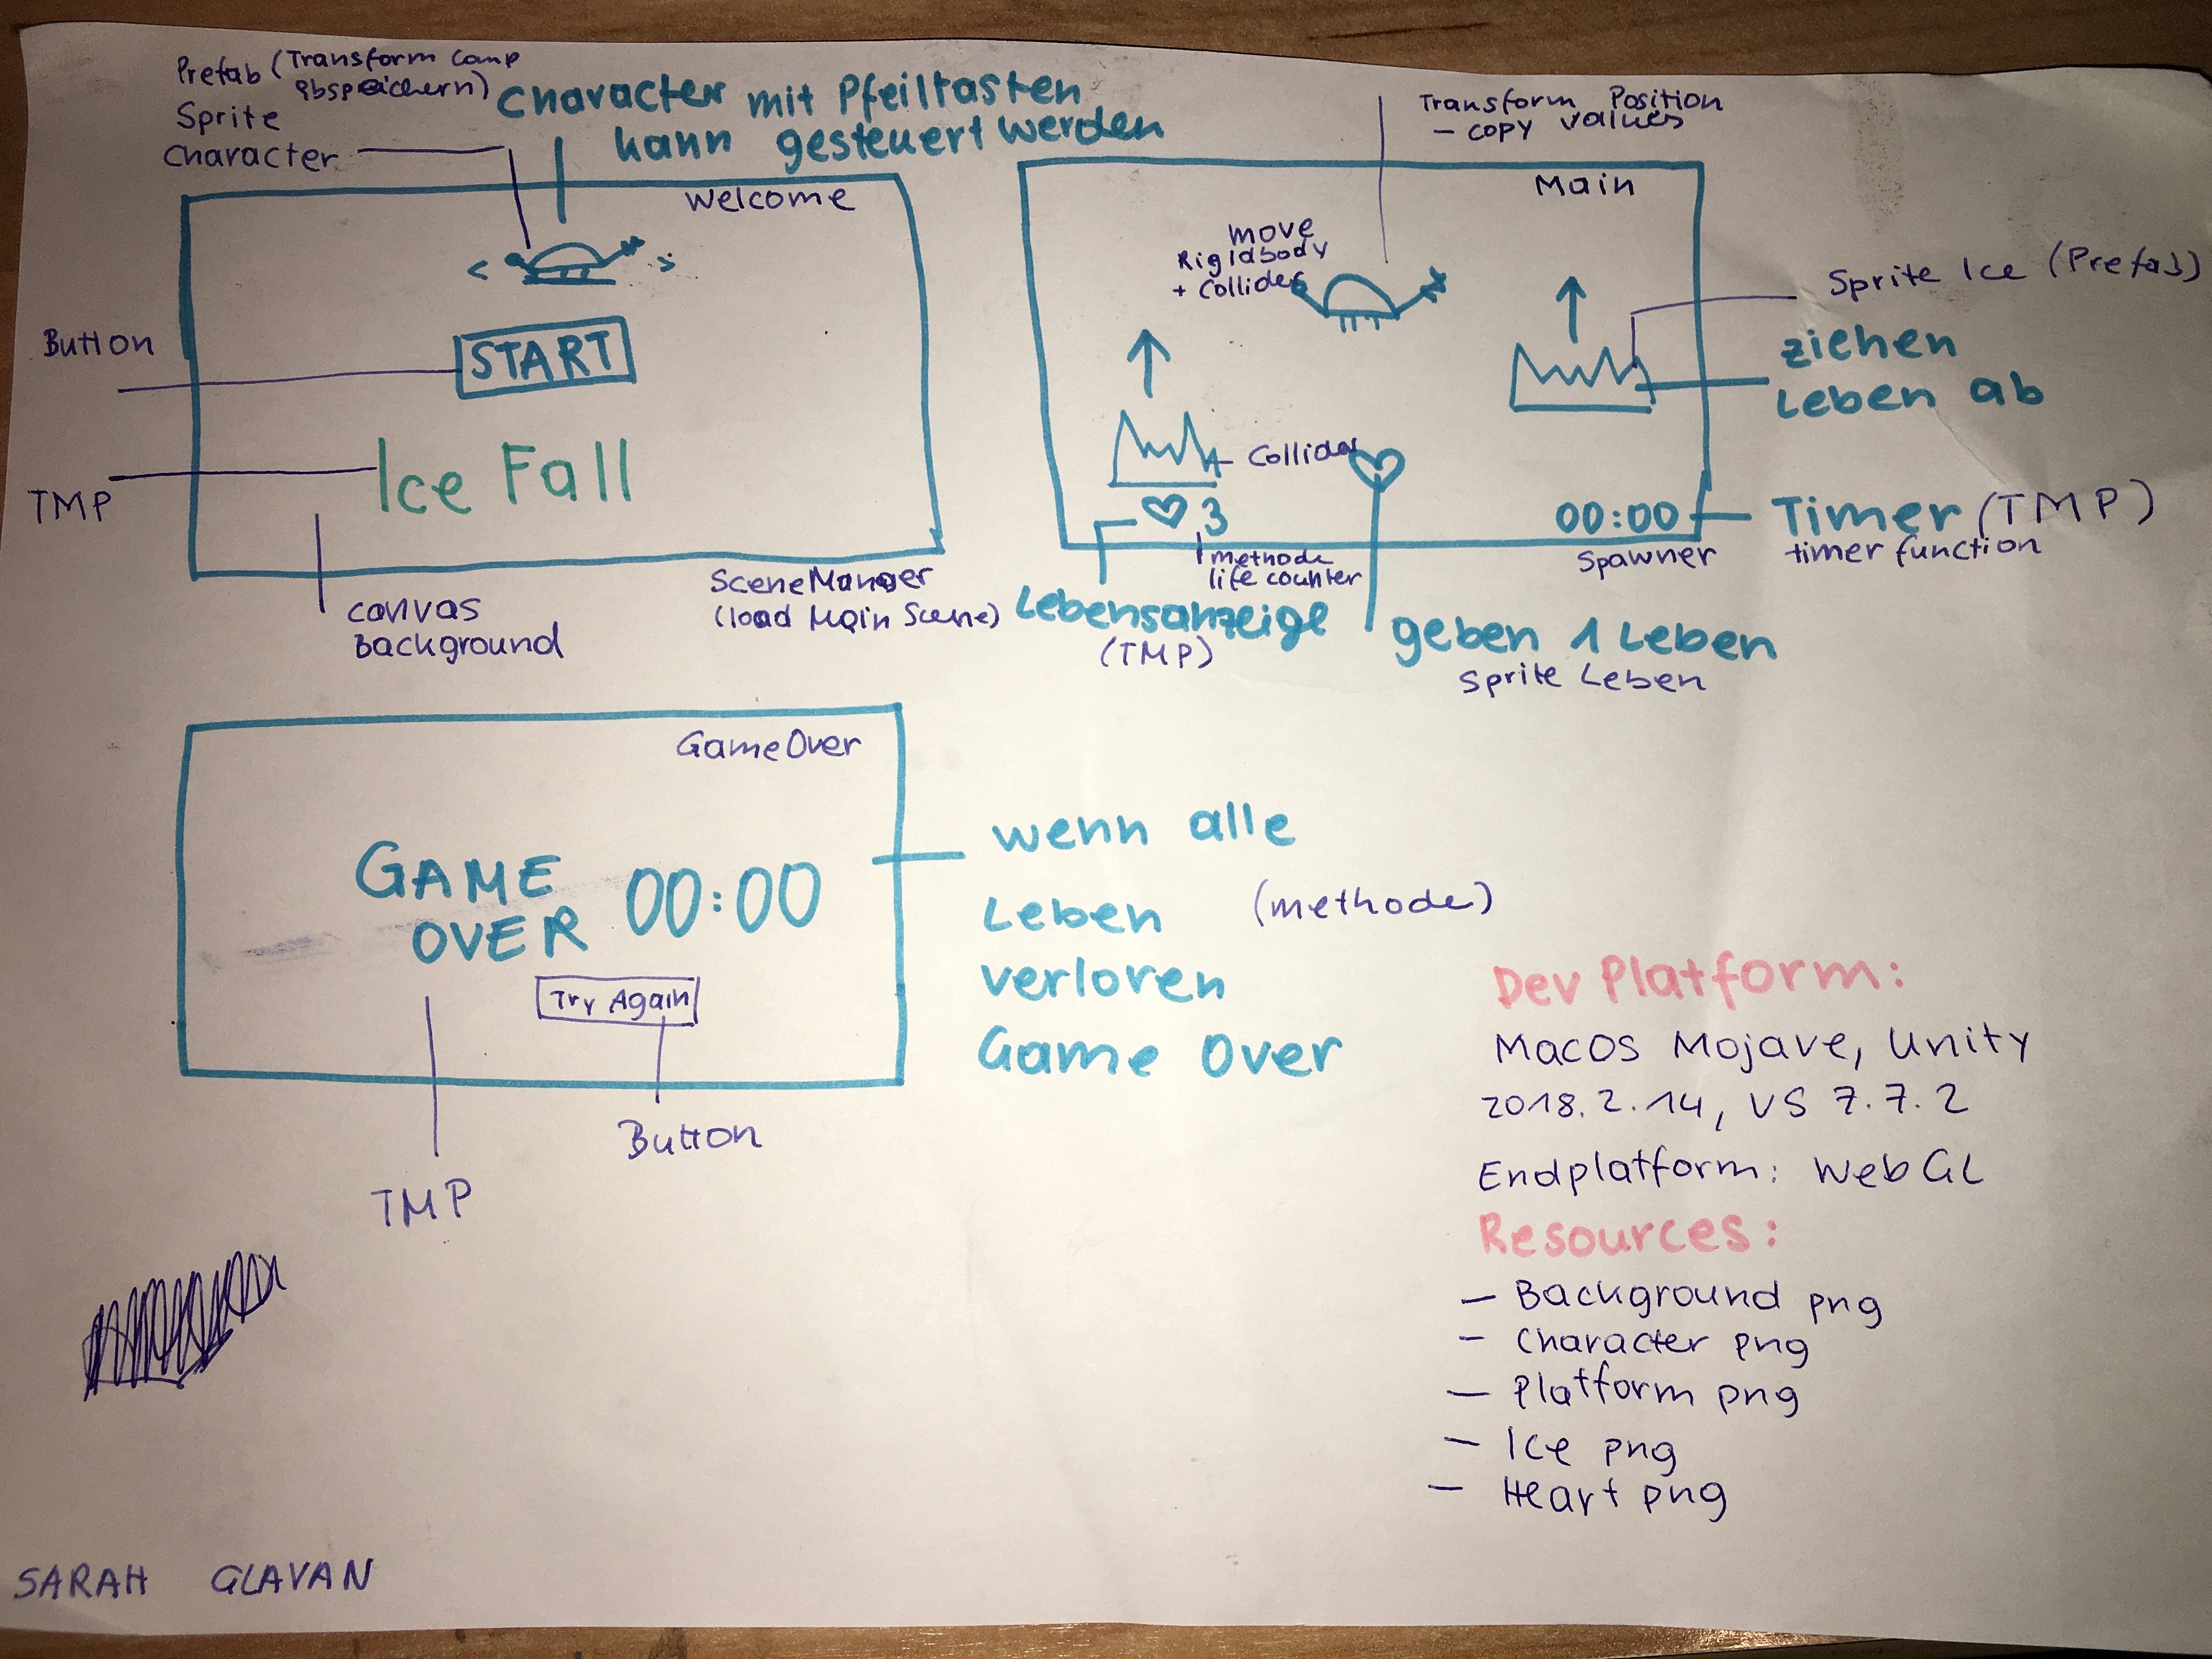 Prefab (Transform Comp
abspeichern)
Sprite
Character
Character mit Pfeiltasten
kann gesteuert werden
Welcome
< >
Button
START
TMP
Ice Fall
canvas
Background
SceneManger
(load Main Scene)
Transform Position
- copy values
Main
move
Rigidbody
+ Collider
Sprite Ice (Prefab)
ziehen
Leben ab
Collider
3
00:00
Timer (TMP)
timer function
Spawner
methode
life counter
Lebensanzeige
(TMP)
geben 1 Leben
Sprite Leben
GameOver
GAME
OVER
00:00
Try Again
Button
TMP
wenn alle
Leben (methode)
verloren
Game Over
Dev Platform:
MacOS Mojave, Unity
2018.2.14, VS 7.7.2
Endplatform: WebGL
Resources:
- Background png
- Character png
- Platform png
- Ice png
- Heart png
SARAH GLAVAN